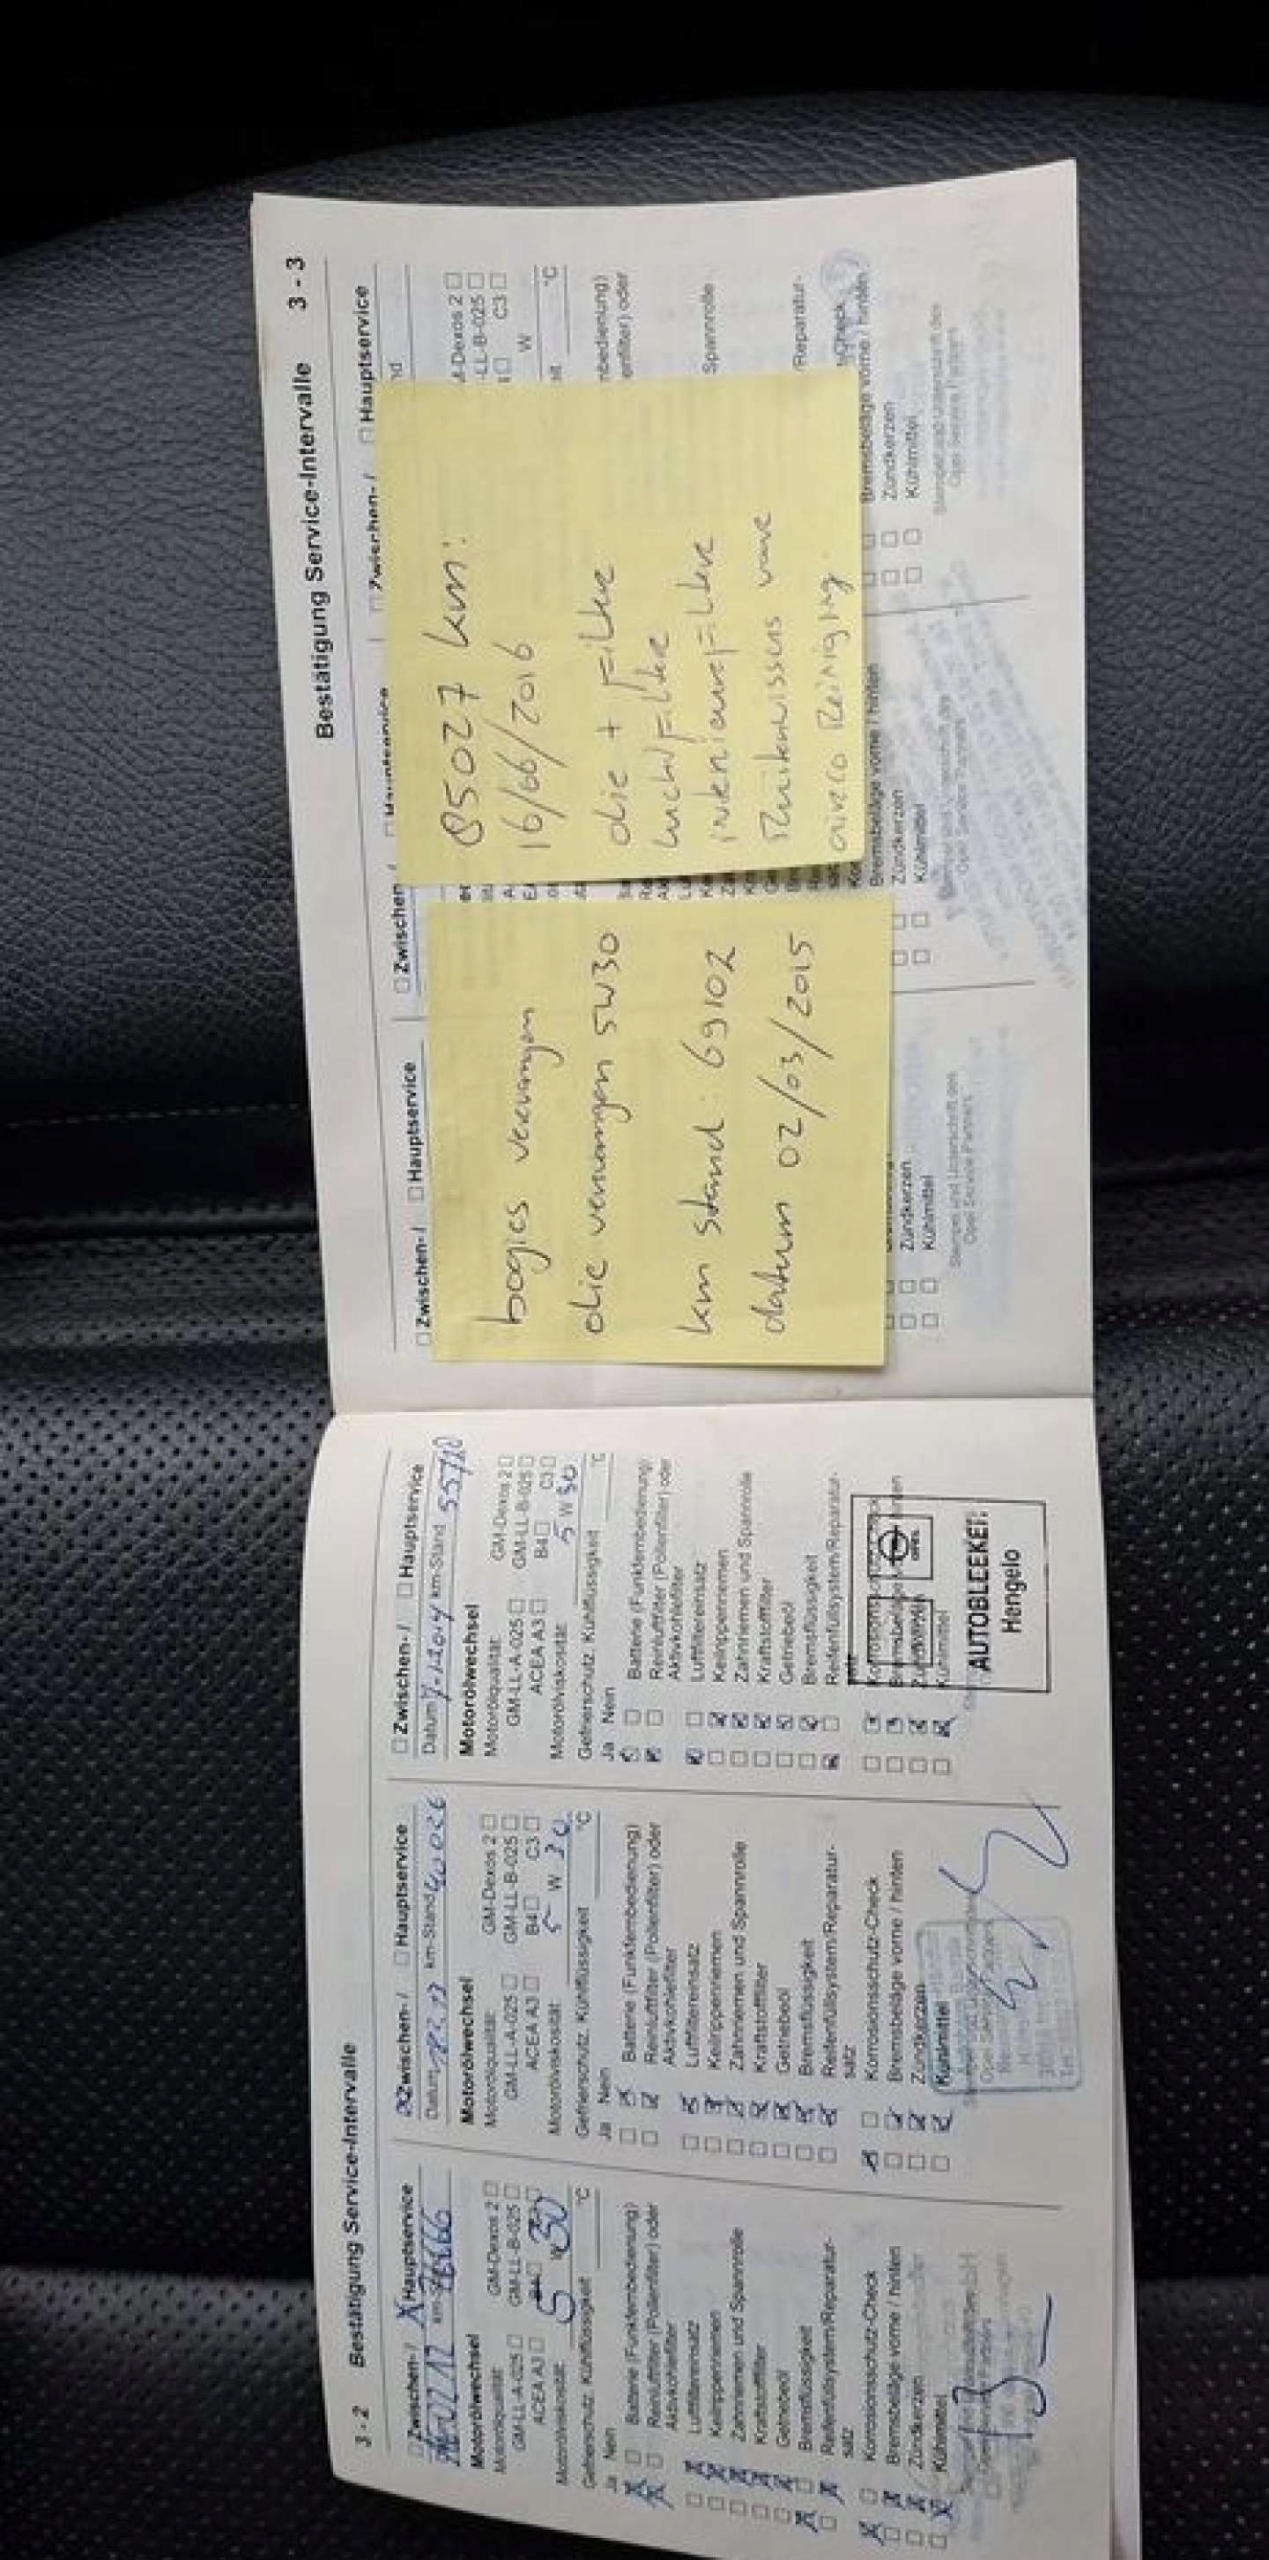 3 - 2 Bestätigung Service-Intervalle
Zwischen- / X Hauptservice
km-
Motorölwechsel
Motorölqualität: GM-Dexos 2
GM-LL-A-025 GM-LL-B-025
ACEA A3
Motorölviskosität: 5 W 30
Gefrierschutz, Kühlflüssigkeit °C
Ja Nein
Batterie (Funkfernbedienung)
Reinluftfilter (Pollenfilter) oder
Aktivkohlefilter
Luftfiltereinsatz
Keilrippenriemen
Zahnriemen und Spannrolle
Kraftstofffilter
Getriebeöl
Bremsflüssigkeit
Reifenfüllsystem/Reparatur-
satz
Korrosionsschutz-Check
Bremsbeläge vorne / hinten
Zündkerzen
Kühlmittel
Zwischen- / Hauptservice
Datum km-Stand 40026
Motorölwechsel
Motorölqualität: GM-Dexos 2
GM-LL-A-025 GM-LL-B-025
ACEA A3 B4 C3
Motorölviskosität: 5 W 30
Gefrierschutz, Kühlflüssigkeit °C
Ja Nein
Batterie (Funkfernbedienung)
Reinluftfilter (Pollenfilter) oder
Aktivkohlefilter
Luftfiltereinsatz
Keilrippenriemen
Zahnriemen und Spannrolle
Kraftstofffilter
Getriebeöl
Bremsflüssigkeit
Reifenfüllsystem/Reparatur-
satz
Korrosionsschutz-Check
Bremsbeläge vorne / hinten
Zündkerzen
Kühlmittel
Zwischen- / Hauptservice
Datum km-Stand
Motorölwechsel
Motorölqualität: GM-Dexos 2
GM-LL-A-025 GM-LL-B-025
ACEA A3 B4 C3
Motorölviskosität: 5 W 30
Gefrierschutz, Kühlflüssigkeit °C
Ja Nein
Batterie (Funkfernbedienung)
Reinluftfilter (Pollenfilter) oder
Aktivkohlefilter
Luftfiltereinsatz
Keilrippenriemen
Zahnriemen und Spannrolle
Kraftstofffilter
Getriebeöl
Bremsflüssigkeit
Reifenfüllsystem/Reparatur-
Kühlmittel
AUTOBLEEKER
Hengelo
Bestätigung Service-Intervalle 3 - 3
Zwischen- / Hauptservice
bogies vervangen
olie vervangen 5W30
km stand: 69102
datum 02/03/2015
Zündkerzen
Kühlmittel
Stempel und Unterschrift des
Opel Service Partners
Zwischen- / Hauptservice
85027 km:
16/06/2016
olie + Filter
luchtFilter
interieurFilter
Ruitenwissers voor
airco Reiniging.
Bremsbeläge vorne / hinten
Zündkerzen
Kühlmittel
Zwischen- / Hauptservice
-Dexos 2
-LL-B-025
C3
W
°C
nbedienung)
enfilter) oder
Spannrolle
/Reparatur-
Check
Bremsbeläge vorne / hinten
Zündkerzen
Kühlmittel
Stempel und Unterschrift des
Opel Service Partners